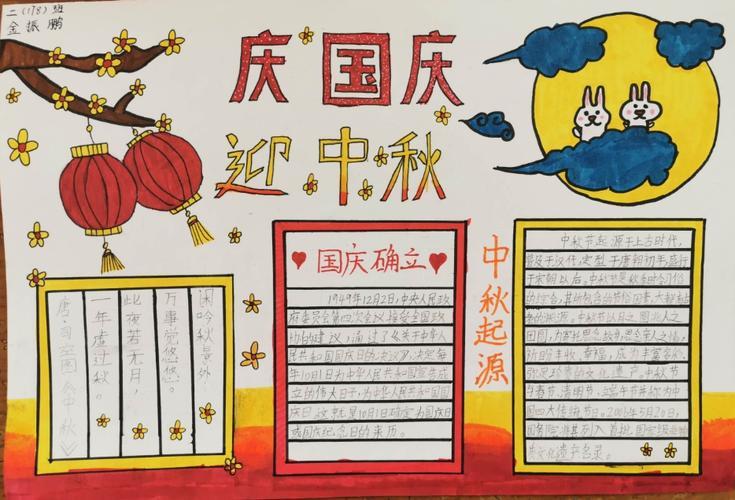 二(178)班
金振鹏
庆国庆
迎中秋
闲吟秋景外,
万事觉悠悠。
此夜若无月,
一年虚过秋。
唐·司空图《中秋》
国庆确立
1949年12月2日,中央人民政
府委员会第四次会议接受全国政
协的建议,通过了《关于中华人
民共和国国庆日的决议》,决定每
年10月1日为中华人民共和国宣告成
立的伟大日子,为中华人民共和国国
庆日.这就是10月1日确定为国庆日
或国庆纪念日的来历。
中秋起源
中秋节起源于上古时代,
普及于汉代,定型于唐朝初年,盛行
于宋朝以后。中秋节是秋季时令习俗
的综合,其所包含的节俗因素,大都有古
老的渊源。中秋节以月之圆兆人之
团圆,为寄托思念故乡,思念亲人之情,
祈盼丰收、幸福,成为丰富多彩、
弥足珍贵的文化遗产。中秋节
与春节、清明节、端午节并称为中
国四大传统节日。2006年5月20日,
国务院将其列入首批国家级非物
质文化遗产名录。